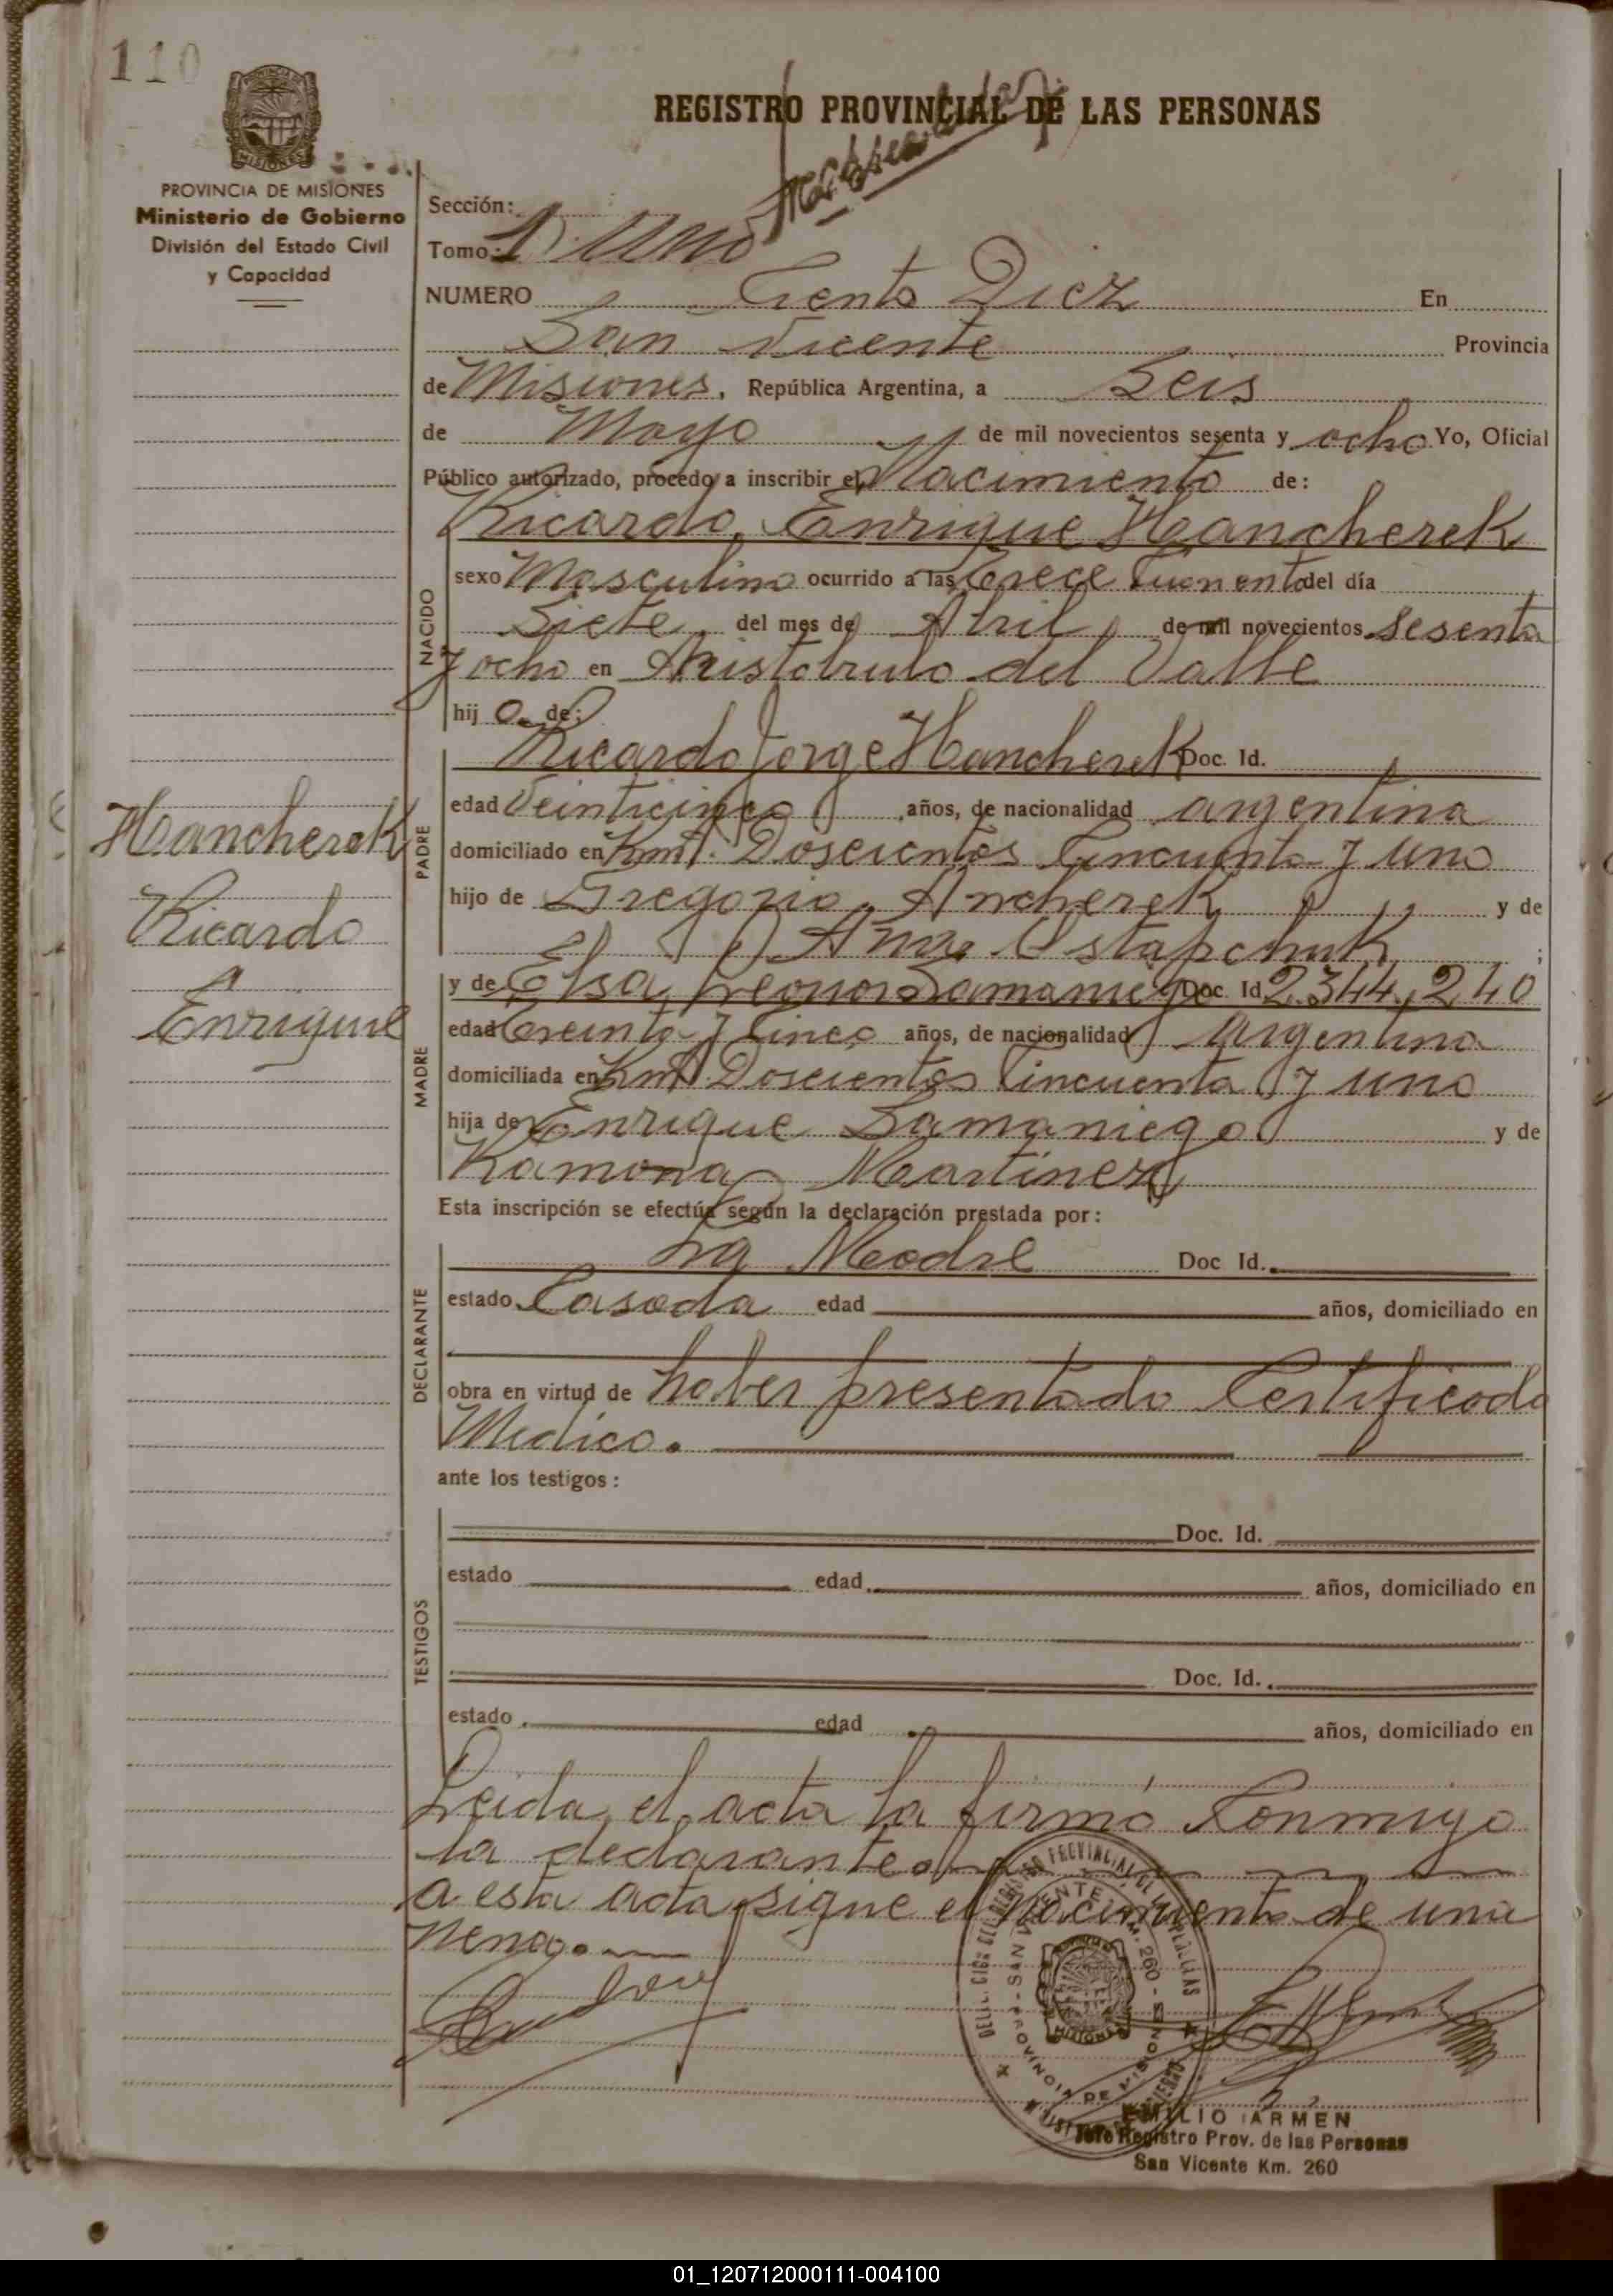 110
REGISTRO PROVINCIAL DE LAS PERSONAS
PROVINCIA DE MISIONES
Ministerio de Gobierno
División del Estado Civil
y Capacidad
Sección:
Tomo: 1 Uno
NUMERO Ciento Diez En
San Vicente Provincia
de Misiones, República Argentina, a Seis
de Mayo de mil novecientos sesenta y ocho Yo, Oficial
Público autorizado, procedo a inscribir el Nacimiento de:
Ricardo Enrique Hancherek
NACIDO
sexo Masculino ocurrido a las trece del día
Siete del mes de Abril de mil novecientos sesenta
y ocho en Aristobulo del Valle
hij o de:
Hancherek
Ricardo
Enrique
PADRE
Ricardo Jorge Hancherek Doc. Id.
edad Veinticinco años, de nacionalidad argentina
domiciliado en Km. Doscientos Cincuenta y uno
hijo de Gregorio Ancherek y de
Ana Ostapchuk ;
MADRE
y de Elsa Leonor Samaniego Doc. Id 2.344.240
edad treinta y Cinco años, de nacionalidad Argentina
domiciliada en Km. Doscientos Cincuenta y uno
hija de Enrique Samaniego y de
Ramona Martinez
Esta inscripción se efectúa según la declaración prestada por:
DECLARANTE
La Madre Doc Id.
estado Casada edad años, domiciliado en
obra en virtud de haber presentado Certificado
Medico.
ante los testigos:
TESTIGOS
Doc. Id.
estado edad años, domiciliado en
Doc. Id.
estado edad años, domiciliado en
Leida el acta la firmó Conmigo
la declarante.
a esta acta sigue el nacimiento de una
nena.
SAN VICENTE KM. 260
PROVINCIA DE MISIONES
MISIONES
EMILIO ARMEN
Jefe Registro Prov. de las Personas
San Vicente Km. 260
01_120712000111-004100